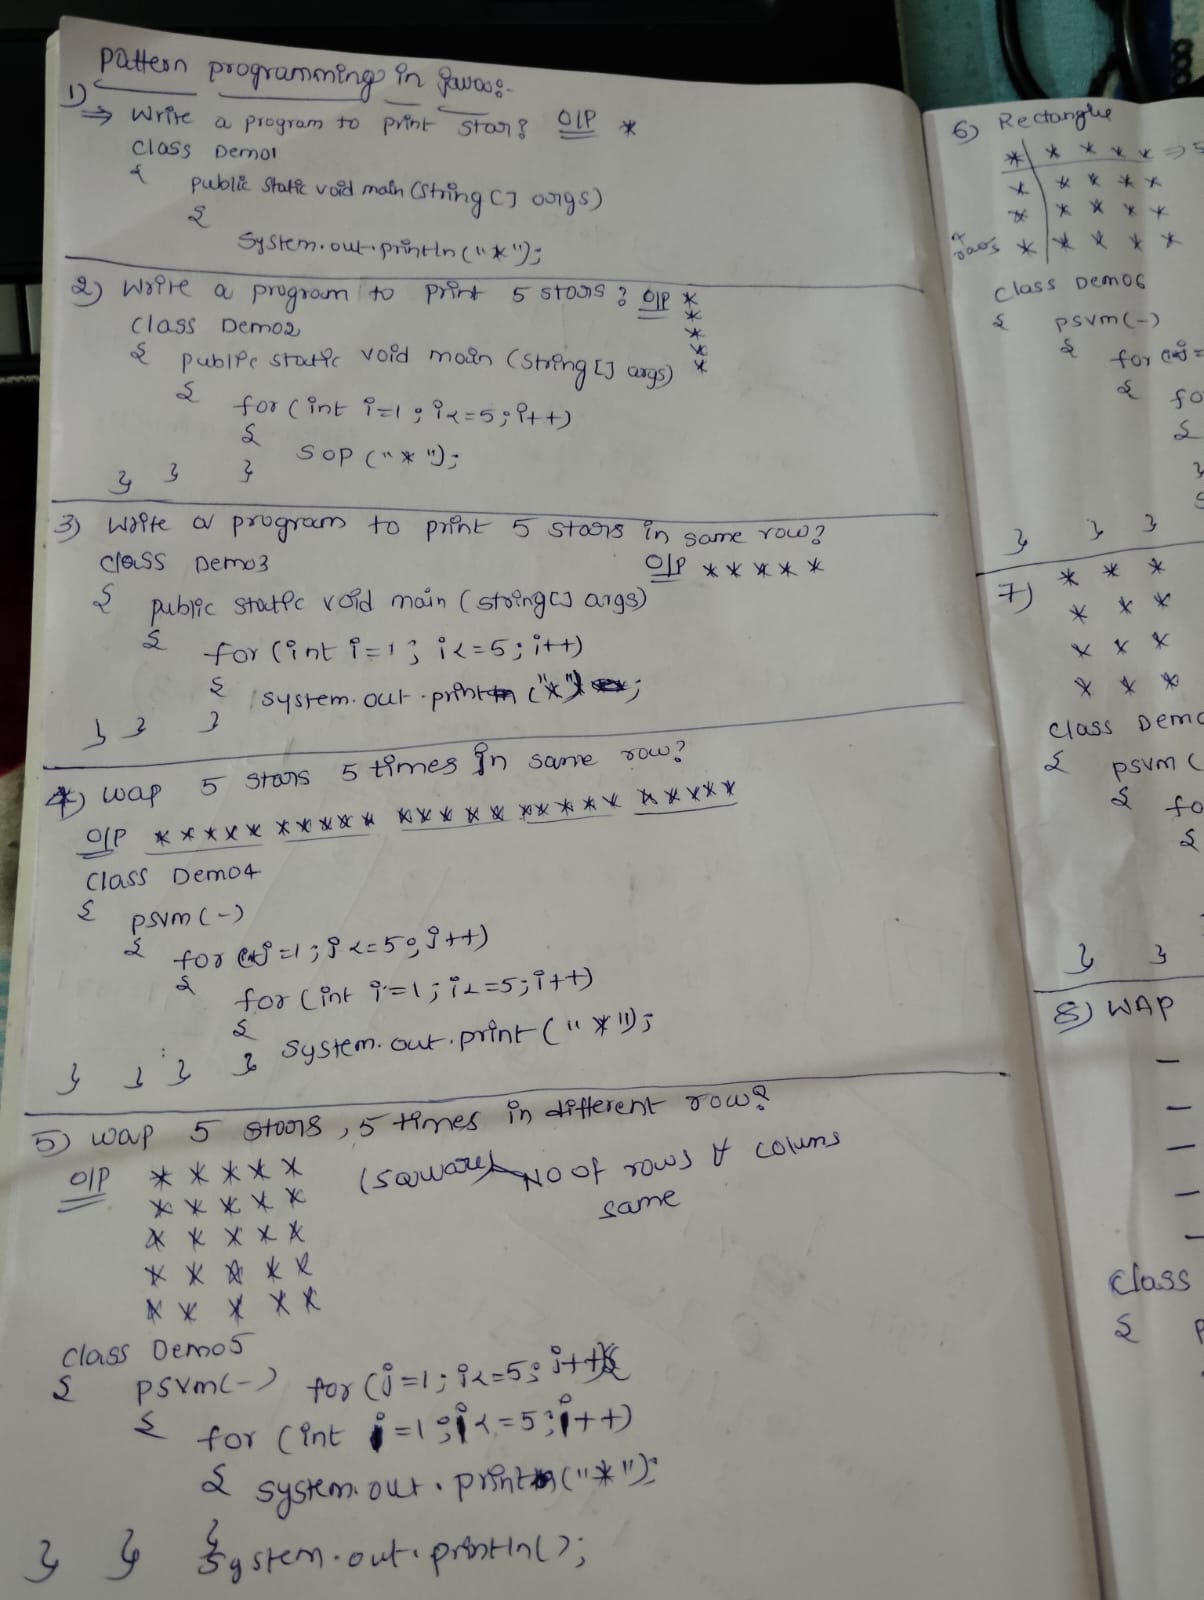 Pattern programming in Java:-
1)
⇒ Write a program to print star? O/P *
Class Demo1
{
public static void main (String [] args)
{
System.out.println("*");
2) Write a program to print 5 stars? O/P *
*
*
*
*
Class Demo2
{ public static void main (String [] args)
{
for (int i=1; i<=5; i++)
{
SOP ("*");
} } }
3) Write a program to print 5 stars in same row?
Class Demo3 O/P * * * * *
{ public static void main (String [] args)
{
for (int i=1; i<=5; i++)
{ System.out.print ("*");
} } }
4) Wap 5 stars 5 times in same row?
O/P * * * * * * * * * * * * * * * * * * * * * * * * *
Class Demo4
{ psvm (-)
{ for (j=1; j<=5; j++)
{
for (int i=1; i<=5; i++)
{ System.out.print ("*");
} } } }
5) Wap 5 stars, 5 times in different row?
O/P * * * * * (Square) NO of rows & colums
* * * * * same
* * * * *
* * * * *
* * * * *
Class Demo5
{ psvm(-) for (j=1; i<=5; i++)
{ for (int i=1; i<=5; i++)
{ System.out.print("*");
}
} } System.out.println();
6) Rectangle
* * * * * ⇒ 5
* * * * *
* * * * *
* * * * *
Class Demo6
{ psvm(-)
{ for (j=
{ fo
{
}
S
} } }
7) * * *
* * *
* * *
* * *
Class Demo
{ psvm (
{ fo
{
} }
8) WAP
–
–
–
–
–
Class
{ P